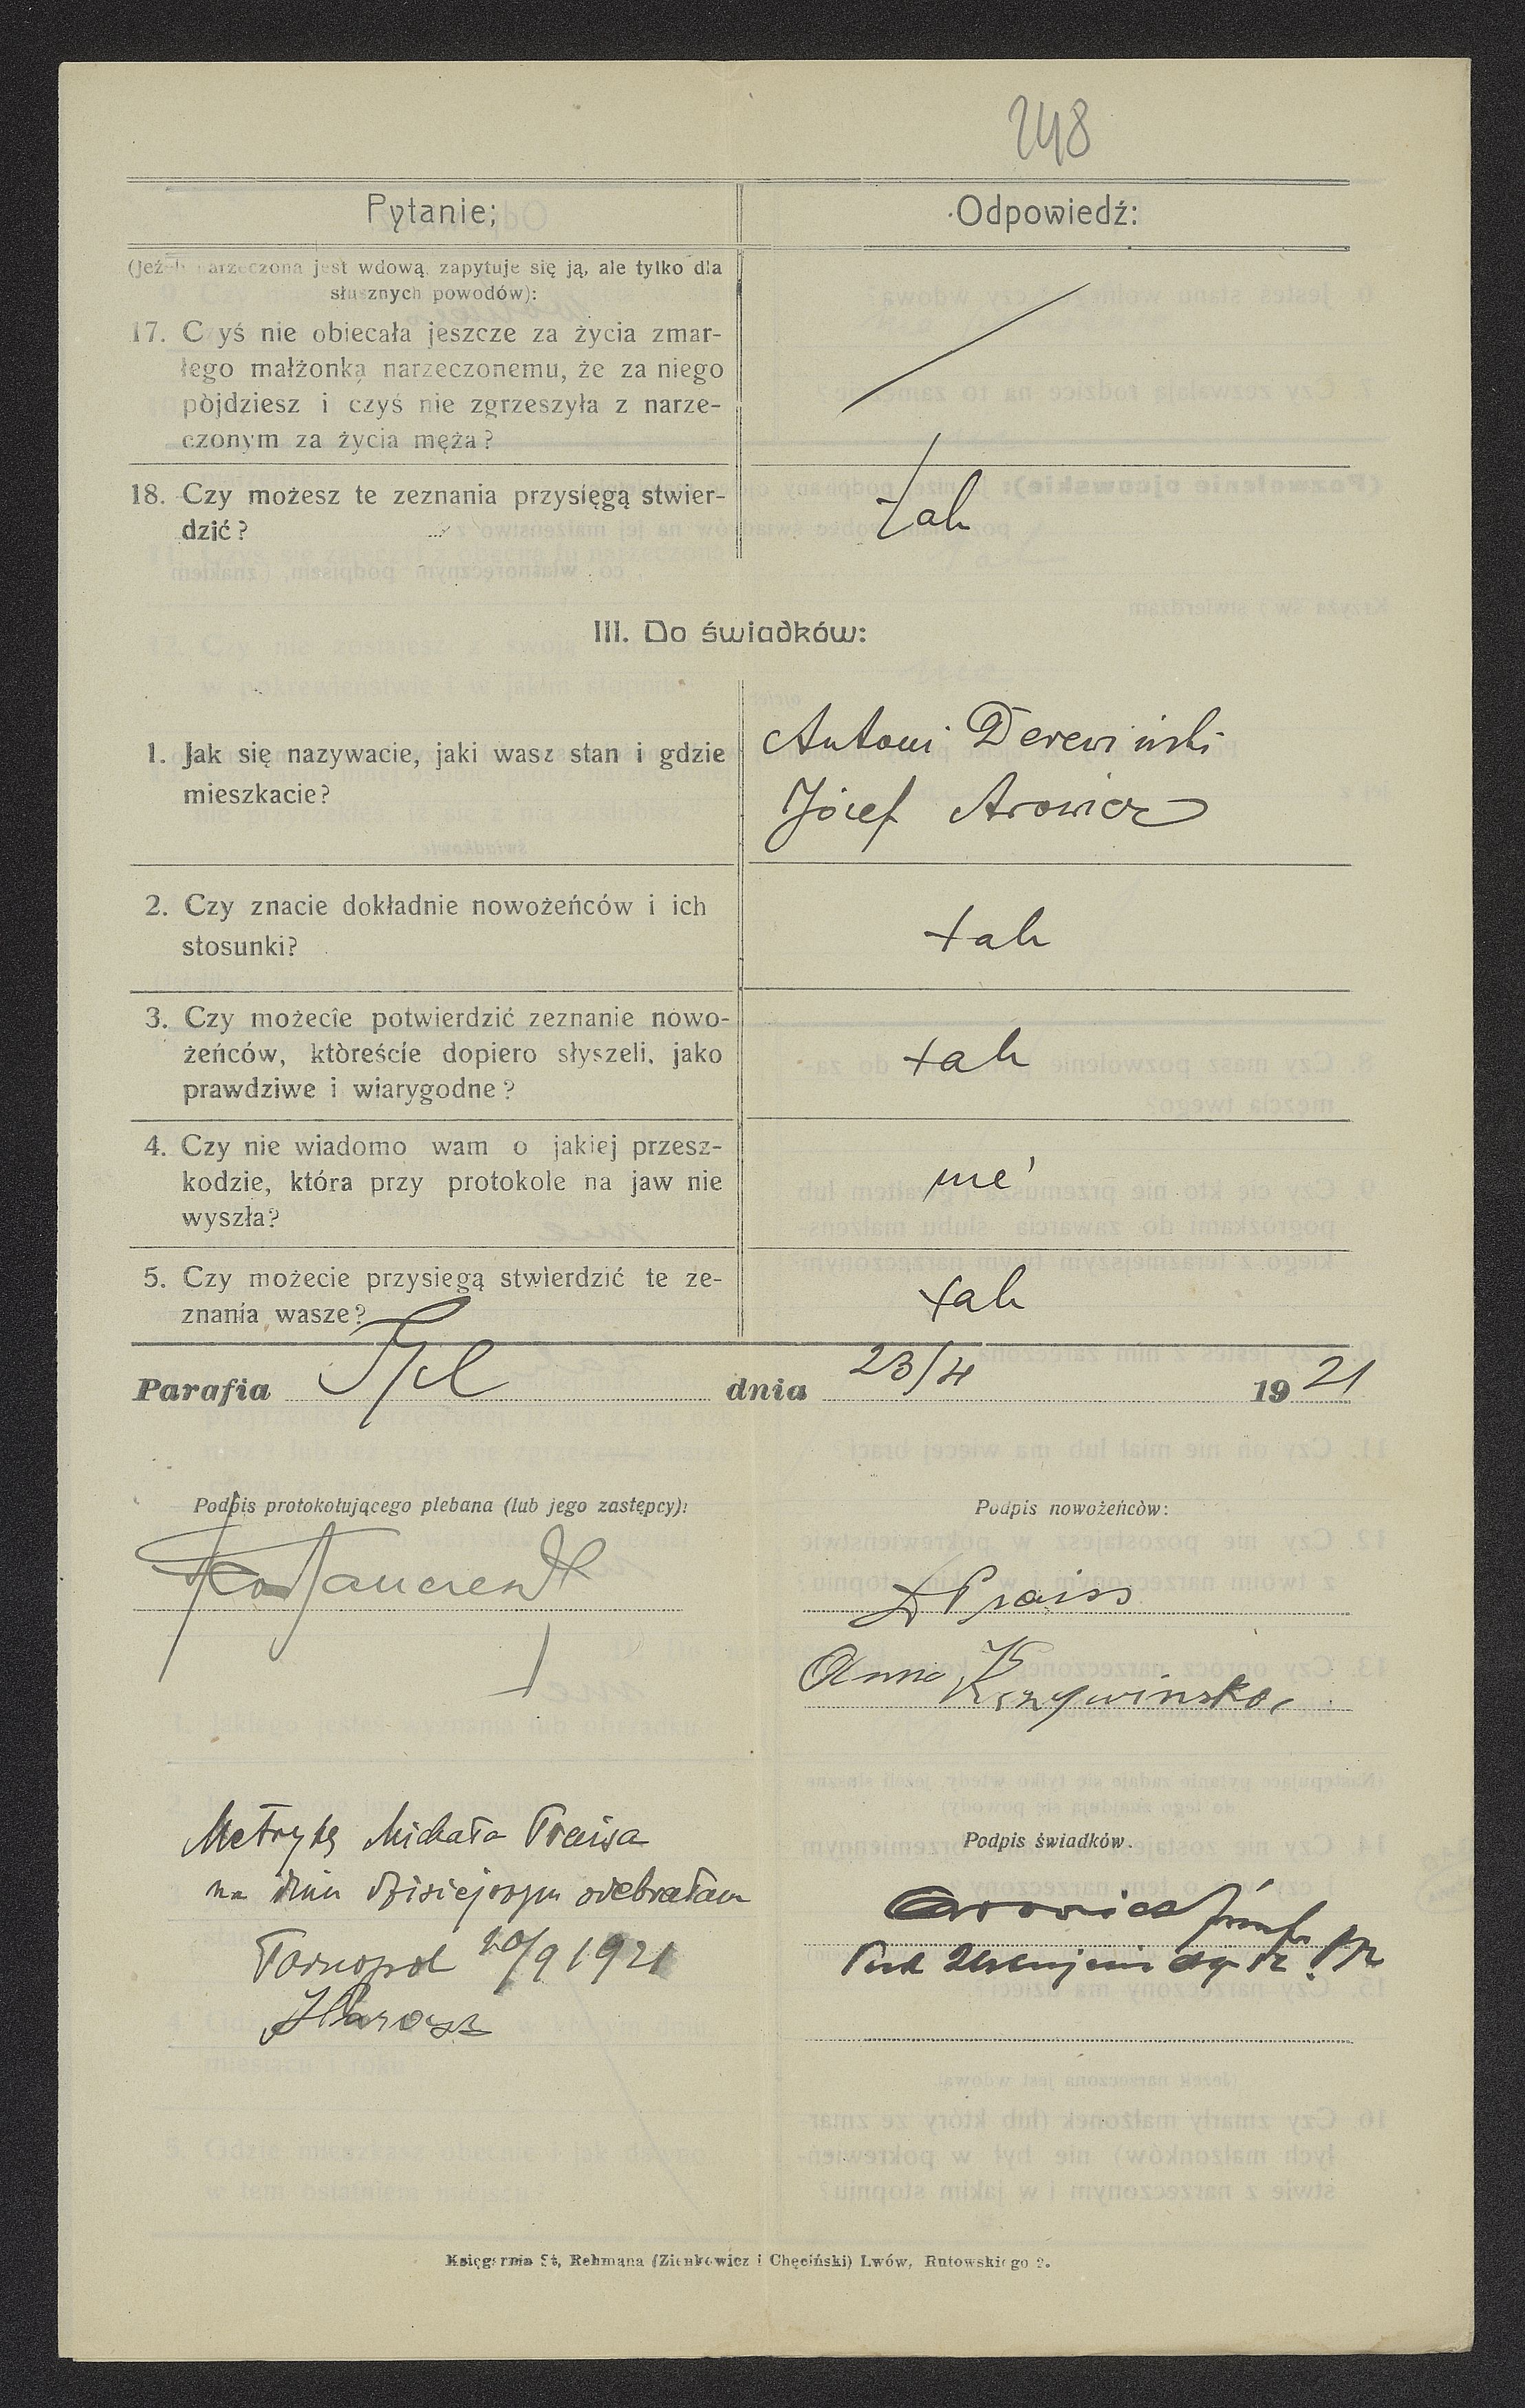 248
Pytanie;
Odpowiedź:
(Jeżeli narzeczona jest wdową, zapytuje się ją, ale tylko dla
słusznych powodów):
17. Czyś nie obiecała jeszcze za życia zmar-
łego małżonka narzeczonemu, że za niego
pòjdziesz i czyś nie zgrzeszyła z narze-
czonym za życia męża?
18. Czy możesz te zeznania przysięgą stwier-
dzić?
tak
III. Do świadków:
1. Jak się nazywacie, jaki wasz stan i gdzie
mieszkacie?
Antoni Derewiński
Józef Arowicz
2. Czy znacie dokładnie nowożeńców i ich
stosunki?
tak
3. Czy możecie potwierdzić zeznanie nowo-
żeńców, któreście dopiero słyszeli, jako
prawdziwe i wiarygodne?
tak
4. Czy nie wiadomo wam o jakiej przesz-
kodzie, która przy protokole na jaw nie
wyszła?
nie
5. Czy możecie przysiegą stwierdzić te ze-
znania wasze?
tak
Parafia dnia 23/4 1921
Podpis protokołującego plebana (lub jego zastępcy):
Podpis nowożeńców:
Praiss
Anna Krzywinska
Metrykę Michała Praisa
na dniu dzisiejszym odebrałam
Tarnopol 20/9 1921
Podpis świadków.
Arowicz Józef
Księgarnia St, Rehmana (Zienkowicz i Chęciński) Lwów, Rutowskiego 9.